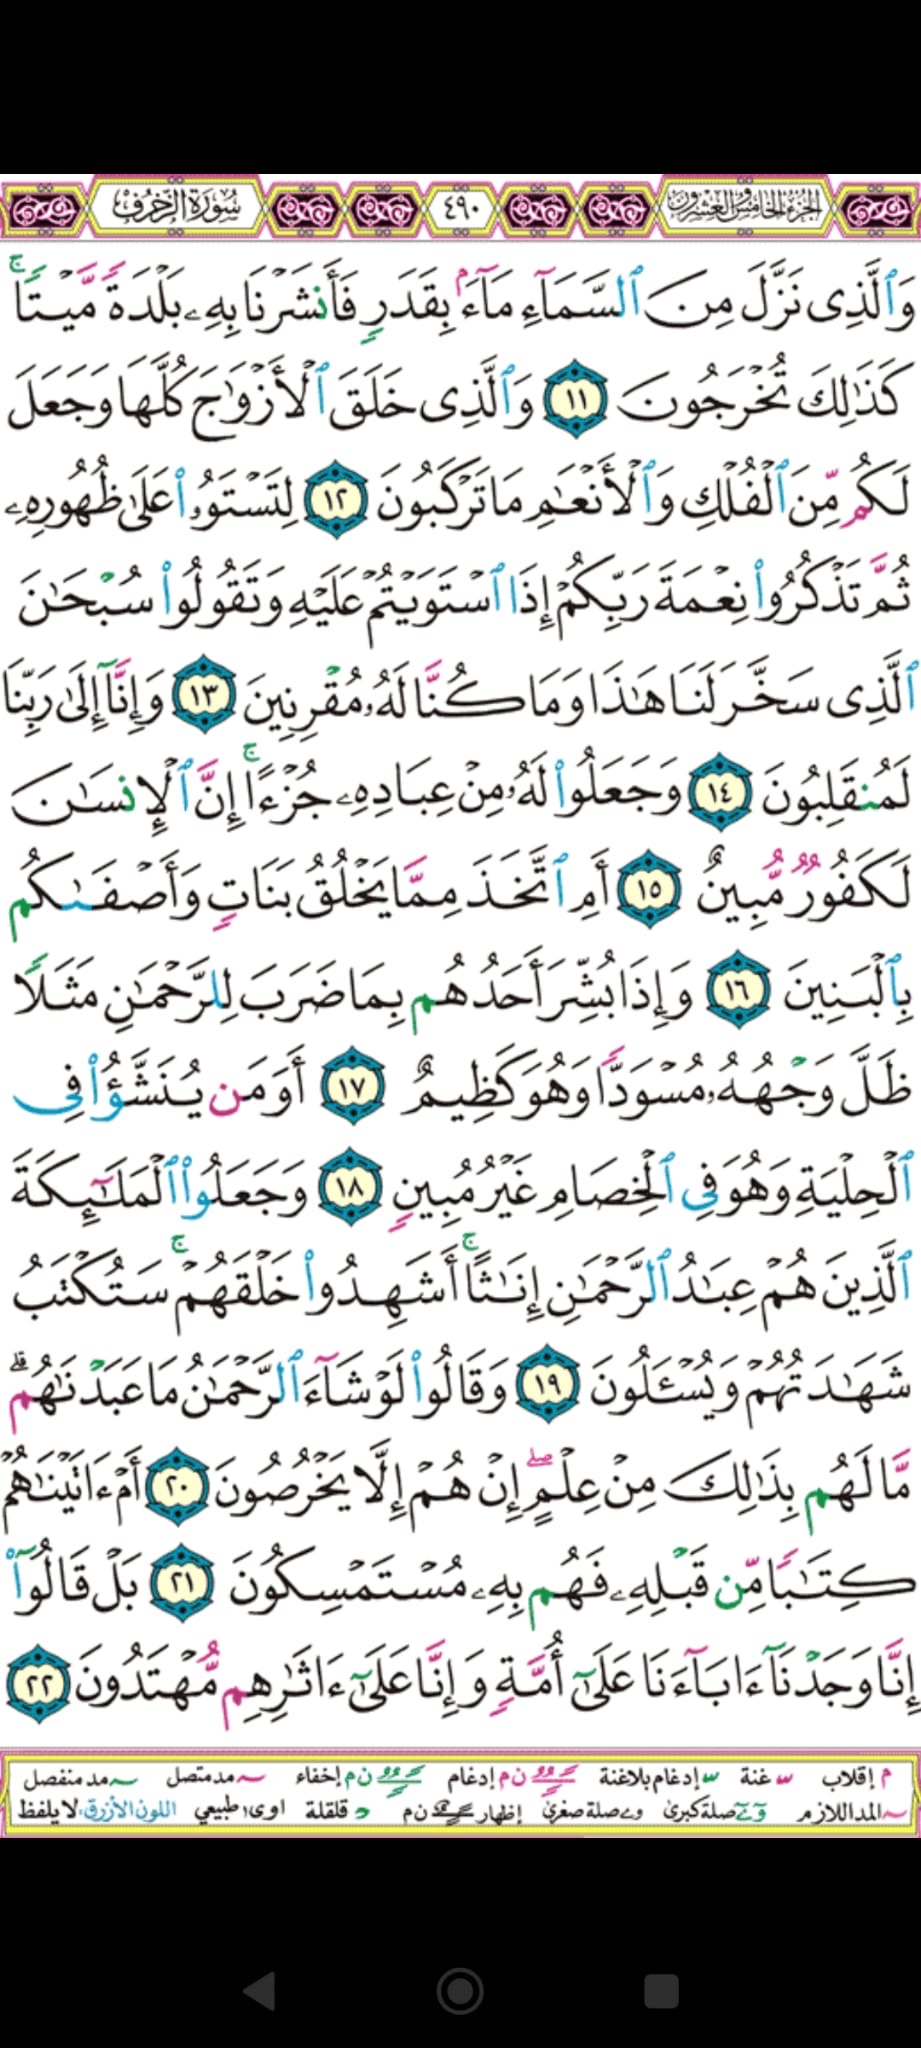 الجزء الخامس والعشرون ٤٩٠ سورة الزخرف
وَٱلَّذِى نَزَّلَ مِنَ ٱلسَّمَآءِ مَآءَۢ بِقَدَرٍ فَأَنشَرْنَا بِهِۦ بَلْدَةً مَّيْتًا ۚ
كَذَٰلِكَ تُخْرَجُونَ ١١ وَٱلَّذِى خَلَقَ ٱلْأَزْوَٰجَ كُلَّهَا وَجَعَلَ
لَكُم مِّنَ ٱلْفُلْكِ وَٱلْأَنْعَٰمِ مَا تَرْكَبُونَ ١٢ لِتَسْتَوُۥا۟ عَلَىٰ ظُهُورِهِۦ
ثُمَّ تَذْكُرُوا۟ نِعْمَةَ رَبِّكُمْ إِذَا ٱسْتَوَيْتُمْ عَلَيْهِ وَتَقُولُوا۟ سُبْحَٰنَ
ٱلَّذِى سَخَّرَ لَنَا هَٰذَا وَمَا كُنَّا لَهُۥ مُقْرِنِينَ ١٣ وَإِنَّآ إِلَىٰ رَبِّنَا
لَمُنقَلِبُونَ ١٤ وَجَعَلُوا۟ لَهُۥ مِنْ عِبَادِهِۦ جُزْءًا ۚ إِنَّ ٱلْإِنسَٰنَ
لَكَفُورٌ مُّبِينٌ ١٥ أَمِ ٱتَّخَذَ مِمَّا يَخْلُقُ بَنَاتٍ وَأَصْفَىٰكُم
بِٱلْبَنِينَ ١٦ وَإِذَا بُشِّرَ أَحَدُهُم بِمَا ضَرَبَ لِلرَّحْمَٰنِ مَثَلًا
ظَلَّ وَجْهُهُۥ مُسْوَدًّا وَهُوَ كَظِيمٌ ١٧ أَوَمَن يُنَشَّؤُا۟ فِى
ٱلْحِلْيَةِ وَهُوَ فِى ٱلْخِصَامِ غَيْرُ مُبِينٍ ١٨ وَجَعَلُوا۟ ٱلْمَلَٰٓئِكَةَ
ٱلَّذِينَ هُمْ عِبَٰدُ ٱلرَّحْمَٰنِ إِنَٰثًا ۚ أَشَهِدُوا۟ خَلْقَهُمْ ۚ سَتُكْتَبُ
شَهَٰدَتُهُمْ وَيُسْـَٔلُونَ ١٩ وَقَالُوا۟ لَوْ شَآءَ ٱلرَّحْمَٰنُ مَا عَبَدْنَٰهُم ۗ
مَّا لَهُم بِذَٰلِكَ مِنْ عِلْمٍ ۖ إِنْ هُمْ إِلَّا يَخْرُصُونَ ٢٠ أَمْ ءَاتَيْنَٰهُمْ
كِتَٰبًا مِّن قَبْلِهِۦ فَهُم بِهِۦ مُسْتَمْسِكُونَ ٢١ بَلْ قَالُوٓا۟
إِنَّا وَجَدْنَآ ءَابَآءَنَا عَلَىٰٓ أُمَّةٍ وَإِنَّا عَلَىٰٓ ءَاثَٰرِهِم مُّهْتَدُونَ ٢٢
م إقلاب غنة إدغام بلاغنة ن م إدغام ن م إخفاء مد متصل مد منفصل
المد اللازم صلة كبرى صلة صغرى إظهار ن م قلقلة اوى طبيعي اللون الأزرق: لا يلفظ